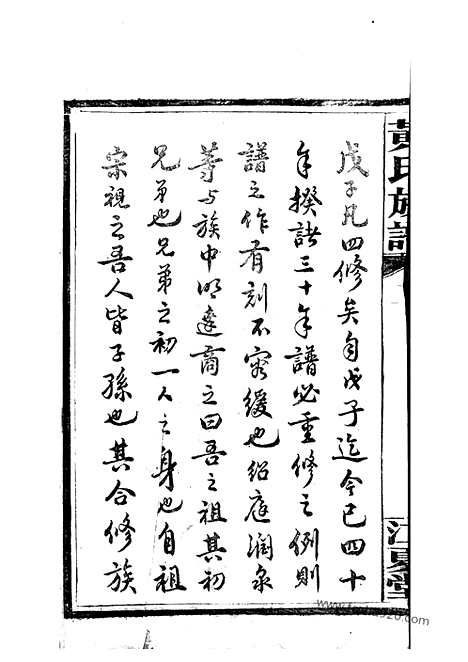 黃氏族譜
江夏堂
戊子凡四修矣自戊子迄今已四十
年揆諸三十年譜必重修之例則
譜之作有刻不容緩也紹庭潤泉
等與族中明達商之曰吾之祖其初
兄弟也兄弟之初一人之身也自祖
宗視之吾人皆子孫也其合修族